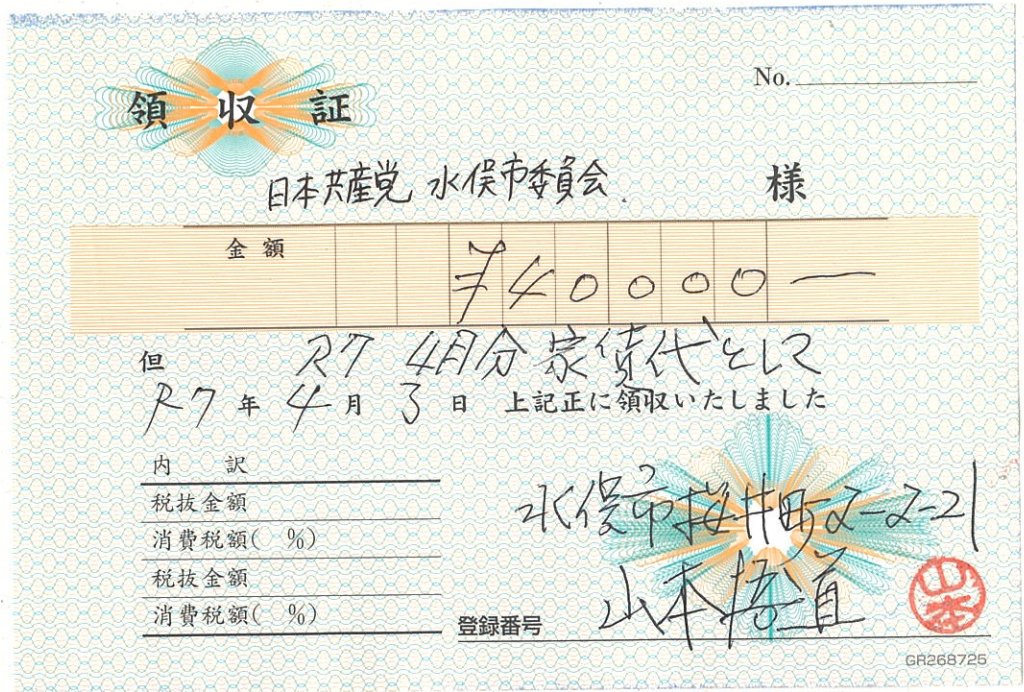 領収証
No.
日本共産党 水俣市委員会 様
金額 ¥40000-
但 R7 4月分 家賃代として
R7年4月3日 上記正に領収いたしました
内訳
税抜金額
消費税額( %)
税抜金額
消費税額( %)
水俣市桜井町2-2-21
山本悟道
山本
登録番号
GR268725